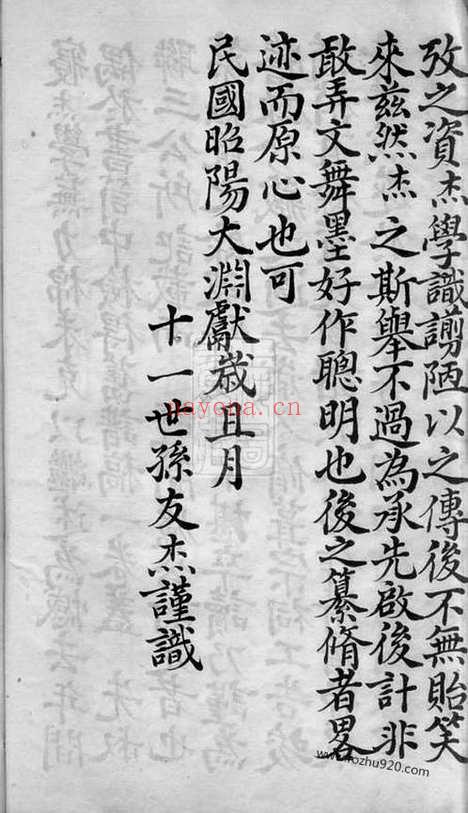 攷之資杰學識謭陋以之傳後不無貽笑
來茲然杰之斯舉不過為承先啟後計非
敢弄文舞墨好作聰明也後之纂脩者畧
迹而原心也可
民國昭陽大淵獻歲且月
十一世孫友杰謹識
nayona.cn
www.rozhu920.com